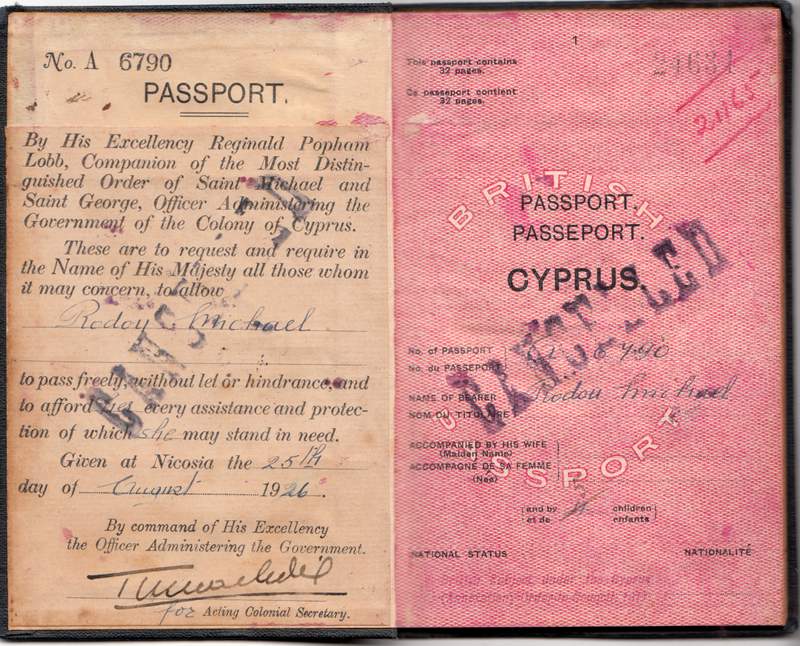 No. A 6790
PASSPORT.
By His Excellency Reginald Popham
Lobb, Companion of the Most Distin-
guished Order of Saint Michael and
Saint George, Officer Administering the
Government of the Colony of Cyprus.
These are to request and require in
the Name of His Majesty all those whom
it may concern, to allow
Rodou Michael
to pass freely, without let or hindrance, and
to afford her every assistance and protec-
tion of which she may stand in need.
Given at Nicosia the 25th
day of August 1926.
By command of His Excellency
the Officer Administering the Government.
for Acting Colonial Secretary.
CANCELLED
1
This passport contains
32 pages.
Ce passeport contient
32 pages.
21634
21165
BRITISH
PASSPORT.
PASSEPORT.
CYPRUS.
CANCELLED
No. of PASSPORT
No. du PASSEPORT
NAME OF BEARER Rodou Michael
NOM DU TITULAIRE
ACCOMPANIED BY HIS WIFE
(Maiden Name)
ACCOMPAGNE DE SA FEMME
(Née)
and by children
et de enfants
PASSPORT
NATIONAL STATUS NATIONALITÉ
British Subject under the Cyprus